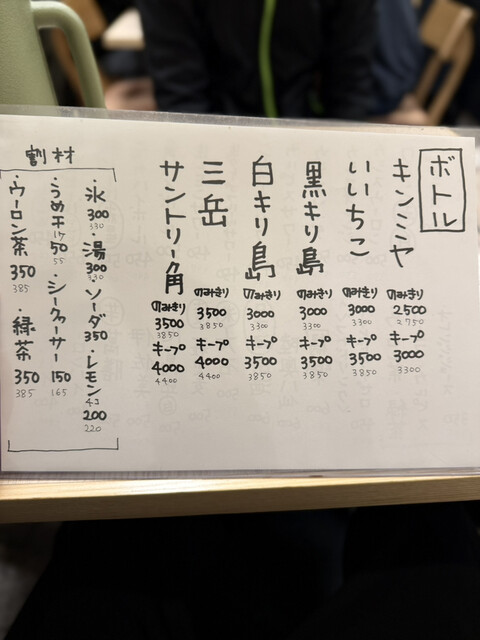 ボトル
キンミヤ
のみきり
2500
2750
キープ
3000
3300
いいちこ
のみきり
3000
3300
キープ
3500
3850
黒キリ島
のみきり
3000
3300
キープ
3500
3850
白キリ島
のみきり
3000
3300
キープ
3500
3850
三岳
のみきり
3500
3850
キープ
4000
4400
サントリー角
のみきり
3500
3850
キープ
4000
4400
割材
・氷 300
330
・湯 300
330
・ソーダ 350
・レモン 4コ 200
220
・うめ干 1ケ 50
55
・シークヮーサー 150
165
・ウーロン茶 350
385
・緑茶 350
385